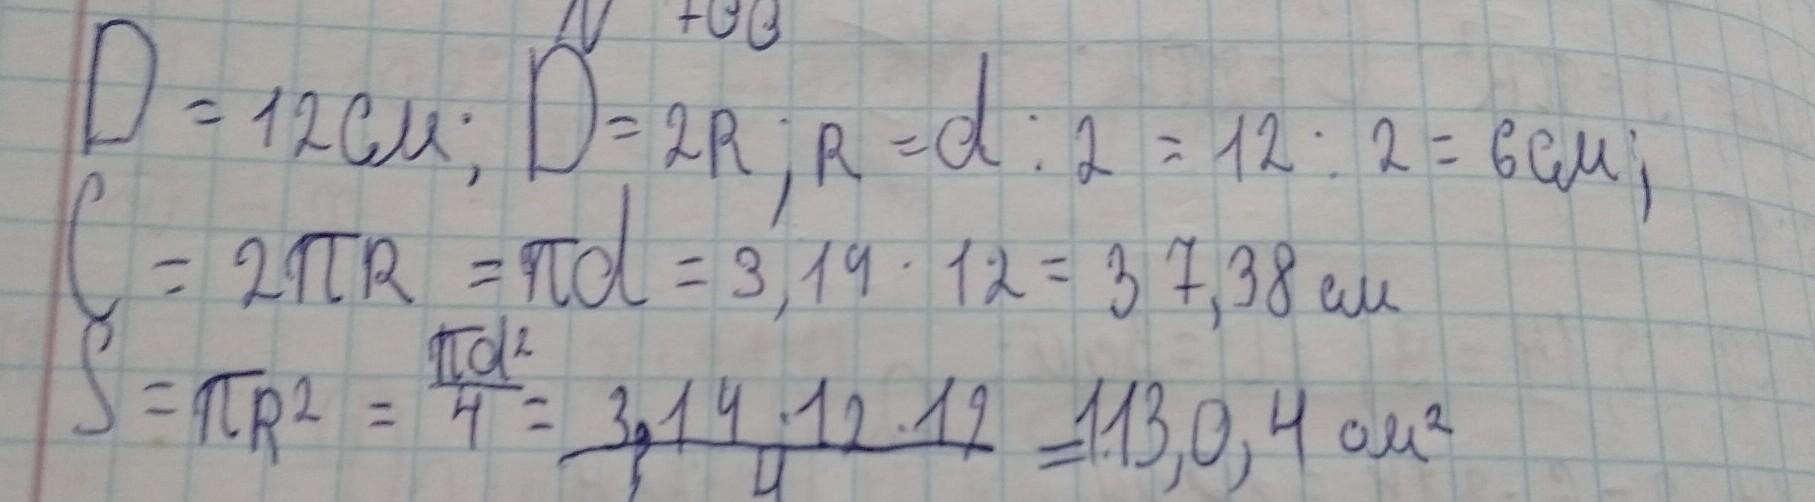 D = 12 см; D = 2R; R = d : 2 = 12 : 2 = 6 см;
C = 2πR = πd = 3,14 · 12 = 37,38 см
S = πR² = πd²/4 = 3,14 · 12 · 12/4 = 113,0,4 см²